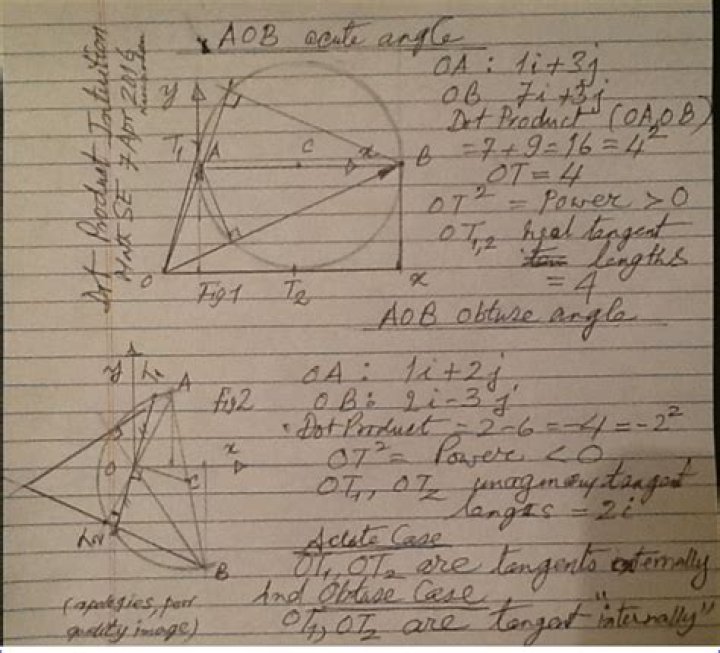 Dot Product Intuition
Math SE 7 Apr 2016
AOB acute angle
OA : 1i+3j
OB 7i+3j
Dot Product (OA,OB)
=7+9=16=4²
OT=4
OT² = Power >0
OT₁,₂ tangent
lengths
= 4
y
T₁
A
C
x
B
O
Fig1
T₂
x
AOB Obtuse angle
OA : 1i+2j
OB: 2i-3j
Dot Product =2-6=-4=-2²
OT² = Power <0
OT₁, OT₂ imaginary tangent
= 2i
y
T₁
A
fig2
O
x
C
B
Acute Case
OT₁, OT₂ are tangents externally
And Obtuse Case
OT₁, OT₂ are tangent "internally"
(apologies, poor
quality image)